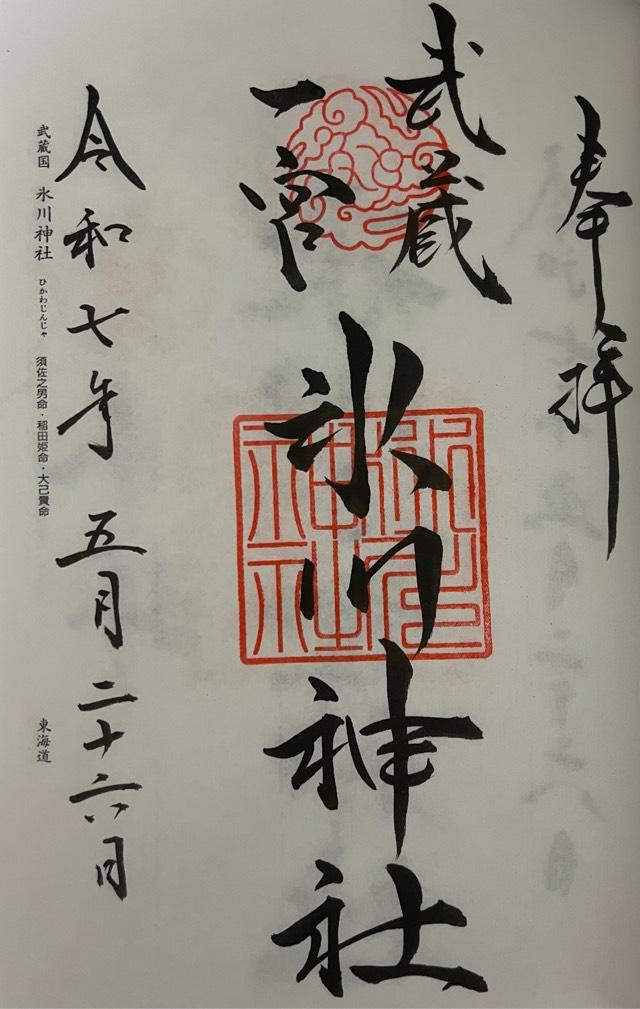 奉拝
武蔵
一宮
氷川神社
令和七年 五月二十六日
武蔵国 氷川神社 ひかわじんじゃ 須佐之男命・稲田姫命・大己貴命 東海道